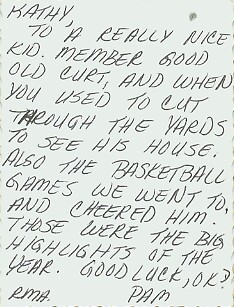 KATHY,
TO A REALLY NICE
KID. MEMBER GOOD
OLD CURT, AND WHEN
YOU USED TO CUT
THROUGH THE YARDS
TO SEE HIS HOUSE.
ALSO THE BASKETBALL
GAMES WE WENT TO,
AND CHEERED HIM.
THOSE WERE THE BIG
HIGHLIGHTS OF THE
YEAR. GOOD LUCK, OK?
RMA PAM